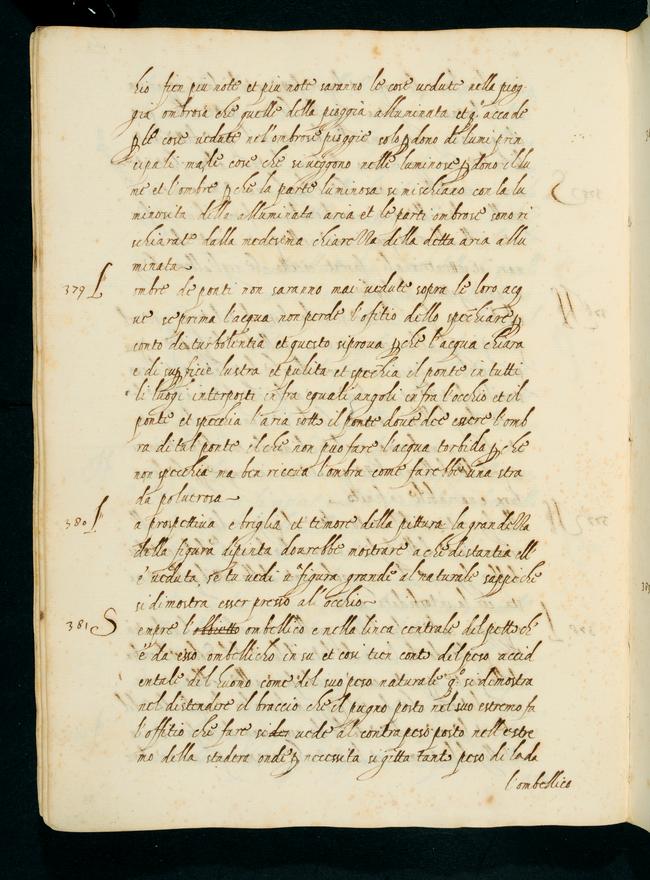 hio fien piu note et piu note saranno le cose uedute nella piog
gia ombrosa che quelle della pioggia alluminata et q.º accade
ꝑ le cose uedute nel'ombrose pioggie solo ꝑdono di lumi prin
cipali ma le cose che si ueggono nelle luminose ꝑdono il lu
me et l'ombre ꝑ che la parte luminosa si mischiano con la lu
minosita della alluminata aria et le parti ombrose sono ri
schiarate dalla medesima chiarezza della detta aria allu
minata
379 L ombre de ponti non saranno mai uedute sopra le loro acq
ue se prima l'acqua non perde l'ofitio dello spechiare ꝑ
conto di turbolentia et questo si proua ꝑ che l'acqua chiara
e di suꝑficie lustra et pulita et spechia il ponte in tutti
li luogi interposti in fra equali angoli in fra l'occhio et il
ponte et spechia l'aria sotto il ponte doue dee essere l'omb
ra di tal ponte il che non puo fare l'acqua torbida ꝑ che
non spechia ma ben riceua l'ombra come farebbe una stra
da poluerosa
380 L a prospettiua e briglia et timore della pittura la grandezza
della figura dipinta dourebbe mostrare a che distantia ell
e ueduta se tu uedi ũª figura grande al naturale sappi che
si dimostra esser presso all'occhio
381 S empre l'obbietto ombellico e nella linea centrale del petto ch
e da esso ombellicho in su et cosi tien conto del peso accid
entale del huomo come del suo peso naturale q.º si dimostra
nel distendere il braccio che il pugno posto nel suo estremo fa
l'offitio che fare si der uede al contrapeso posto nell'estre
mo della stadera onde ꝑ necessita si gitta tanto peso di la da
l'ombellico